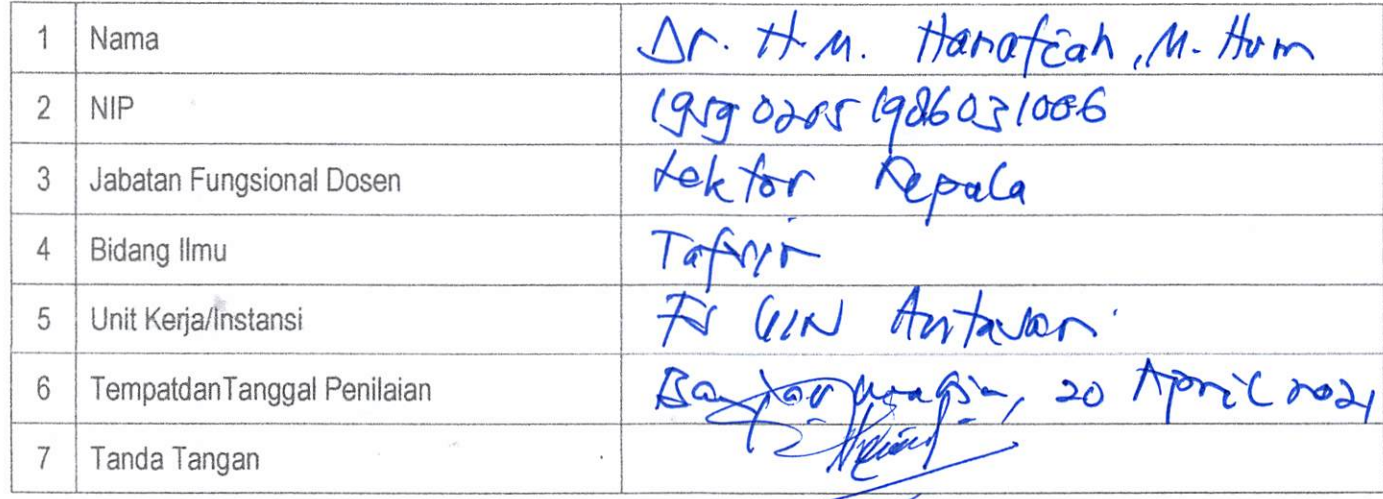 1 Nama Dr. H. M. Hanafiah, M. Hum
2 NIP 195902051986031006
3 Jabatan Fungsional Dosen Lektor Kepala
4 Bidang Ilmu Tafsir
5 Unit Kerja/Instansi UIN Antasari
6 TempatdanTanggal Penilaian Banjarmasin, 20 April 2021
7 Tanda Tangan